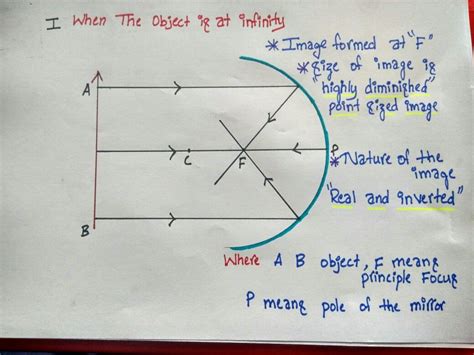 I When The Object is at infinity
* Image formed at "F"
* Size of image is
"highly diminished"
point sized image
A
C
F
P
B
* Nature of the
image
"Real and inverted"
Where A B object, F means
principle Focus
P means pole of the mirror